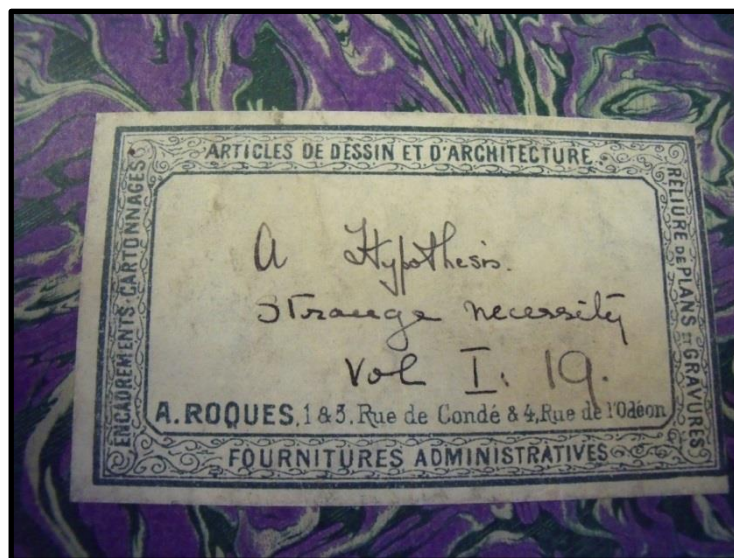 ARTICLES DE DESSIN ET D'ARCHITECTURE
ENCADREMENTS-CARTONNAGES
RELIURE DE PLANS ET GRAVURES
A Hypothesis.
Strange necessity
Vol I: 19.
A. ROQUES, 1 & 3, Rue de Condé & 4, Rue de l'Odéon
FOURNITURES ADMINISTRATIVES